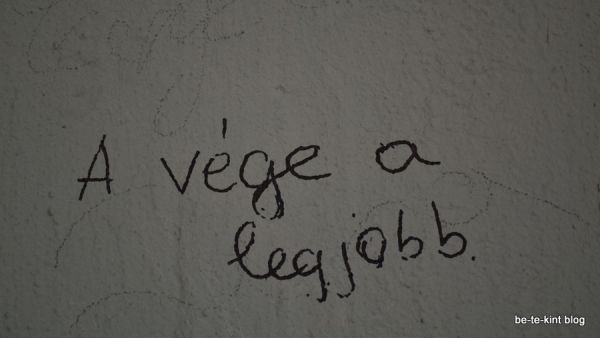 A vége a
legjobb.
be-te-kint blog